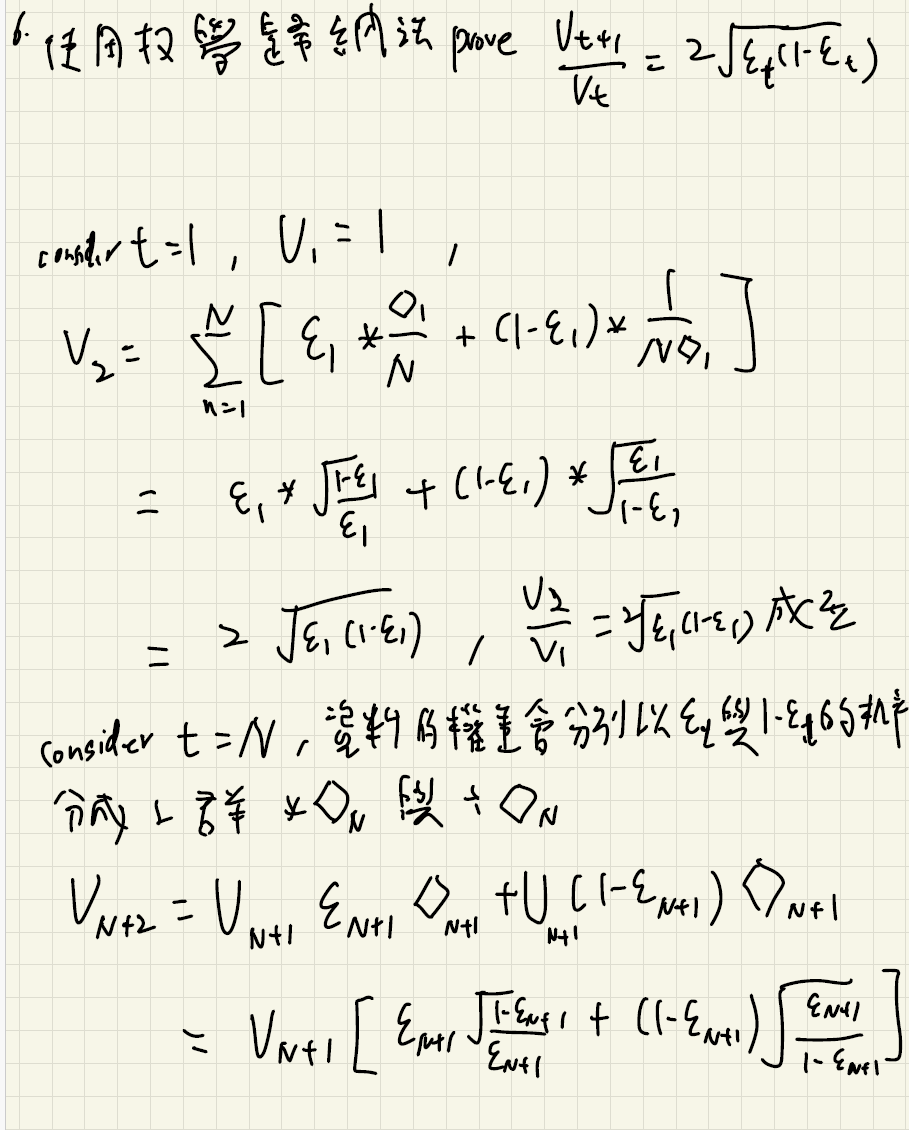 6. 使用 數學歸納法 prove \frac{U_{t+1}}{U_t} = 2\sqrt{ε_t(1-ε_t)}
consider t=1, U_1 = 1,
U_2 = \sum_{n=1}^{N} [ ε_1 * \frac{◇_1}{N} + (1-ε_1) * \frac{1}{N◇_1} ]
= ε_1 * \sqrt{\frac{1-ε_1}{ε_1}} + (1-ε_1) * \sqrt{\frac{ε_1}{1-ε_1}}
= 2\sqrt{ε_1(1-ε_1)}, \frac{U_2}{U_1} = 2\sqrt{ε_1(1-ε_1)} 成立
consider t=N, 資料的權重會分別以 ε_t 與 1-ε_t 的機率
分成 2 群 *◇_N 與 ÷◇_N
U_{N+2} = U_{N+1} ε_{N+1} ◇_{N+1} + U_{N+1} (1-ε_{N+1}) ◇_{N+1}
= U_{N+1} [ ε_{N+1} \sqrt{\frac{1-ε_{N+1}}{ε_{N+1}}} + (1-ε_{N+1}) \sqrt{\frac{ε_{N+1}}{1-ε_{N+1}}} ]